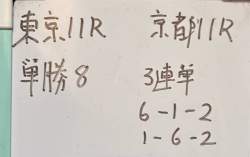 東京11R 京都11R
単勝8 3連単
6-1-2
1-6-2